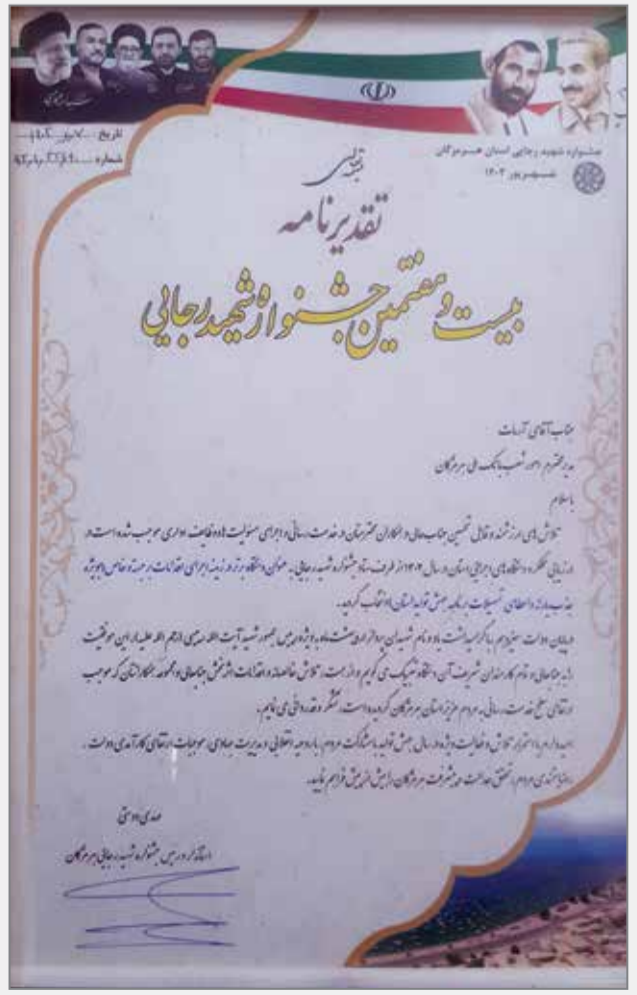 تاریخ
شماره
جشنواره شهید رجایی استان هرمزگان
شهریور ۱۴۰۳
بسمه تعالی
تقدیرنامه
بیست و هفتمین جشنواره شهید رجایی
جناب آقای آرمات
مدیر محترم امور شعب بانک ملی هرمزگان
با سلام
تلاش های ارزشمند و قابل تحسین جنابعالی و همکاران محترمتان در خدمت رسانی و اجرای مسئولیت ها و وظایف اداری موجب شده است در
ارزیابی عملکرد دستگاه های اجرایی استان در سال ۱۴۰۲ از طرف ستاد جشنواره شهید رجایی، به عنوان دستگاه برتر در زمینه اجرای اقدامات برجسته و خاص و ویژه
جذب منابع و اعطای تسهیلات برنامه جهش تولید استان انتخاب گردید.
در پایان دولت سیزدهم با گرامیداشت یاد و نام شهیدان پرواز اردیبهشت ماه به ویژه رییس جمهور شهید آیت الله رییسی (رحم الله علیه) این موفقیت
را به جنابعالی و تمام کارمندان شریف آن دستگاه تبریک می گویم و از همت، تلاش خالصانه و اقدامات اثربخش جنابعالی و مجموعه همکارانتان که موجب
ارتقای سطح خدمت رسانی به مردم عزیز استان هرمزگان گردیده است، تشکر و قدردانی می نمایم.
امیدوارم با استمرار تلاش و فعالیت ویژه در سال جهش تولید با مشارکت مردم با روحیه انقلابی و مدیریت جهادی، موجبات ارتقای کارآمدی دولت،
رضایتمندی مردم، تحقق عدالت و پیشرفت هرمزگان را بیش از پیش فراهم نمایید.
مهدی دوستی
استاندار و رییس جشنواره شهید رجایی هرمزگان